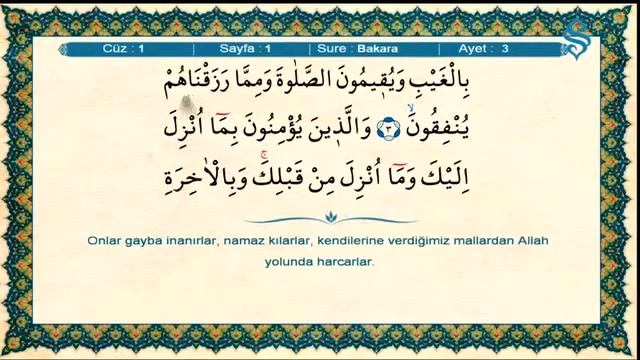 Cüz : 1 Sayfa : 1 Sure : Bakara Ayet : 3
بِالْغَيْبِ وَيُق۪يمُونَ الصَّلٰوةَ وَمِمَّا رَزَقْنَاهُمْ
يُنْفِقُونَۙ ﴿٣﴾ وَالَّذ۪ينَ يُؤْمِنُونَ بِمَٓا اُنْزِلَ
اِلَيْكَ وَمَٓا اُنْزِلَ مِنْ قَبْلِكَۚ وَبِالْاٰخِرَةِ
Onlar gayba inanırlar, namaz kılarlar, kendilerine verdiğimiz mallardan Allah
yolunda harcarlar.